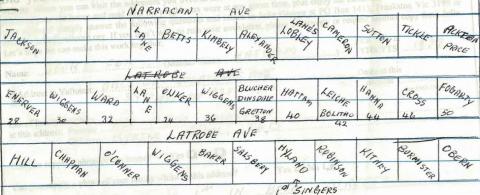 NARRACAN AVE
JACKSON LANE BETTS KIMBELY ALEXANDER LANE'S LOBLEY CAMERON SUTTON TICKLE PRICE
LATROBE AVE
ENERVER WIGGENS WARD LANE OLIVER WIGGENS BLUCHER DINSDALE GRETTON HATTAM LEICHE BOLITHO HANNA CROSS FOGARTY
28 30 32 34 36 38 40 42 44 46 50
LATROBE AVE
HILL CHAPMAN O'CONNER WIGGENS BAKER SALSBERY HYLAND ROBINSON KITNEY BURMISTER OBERN
SINGERS